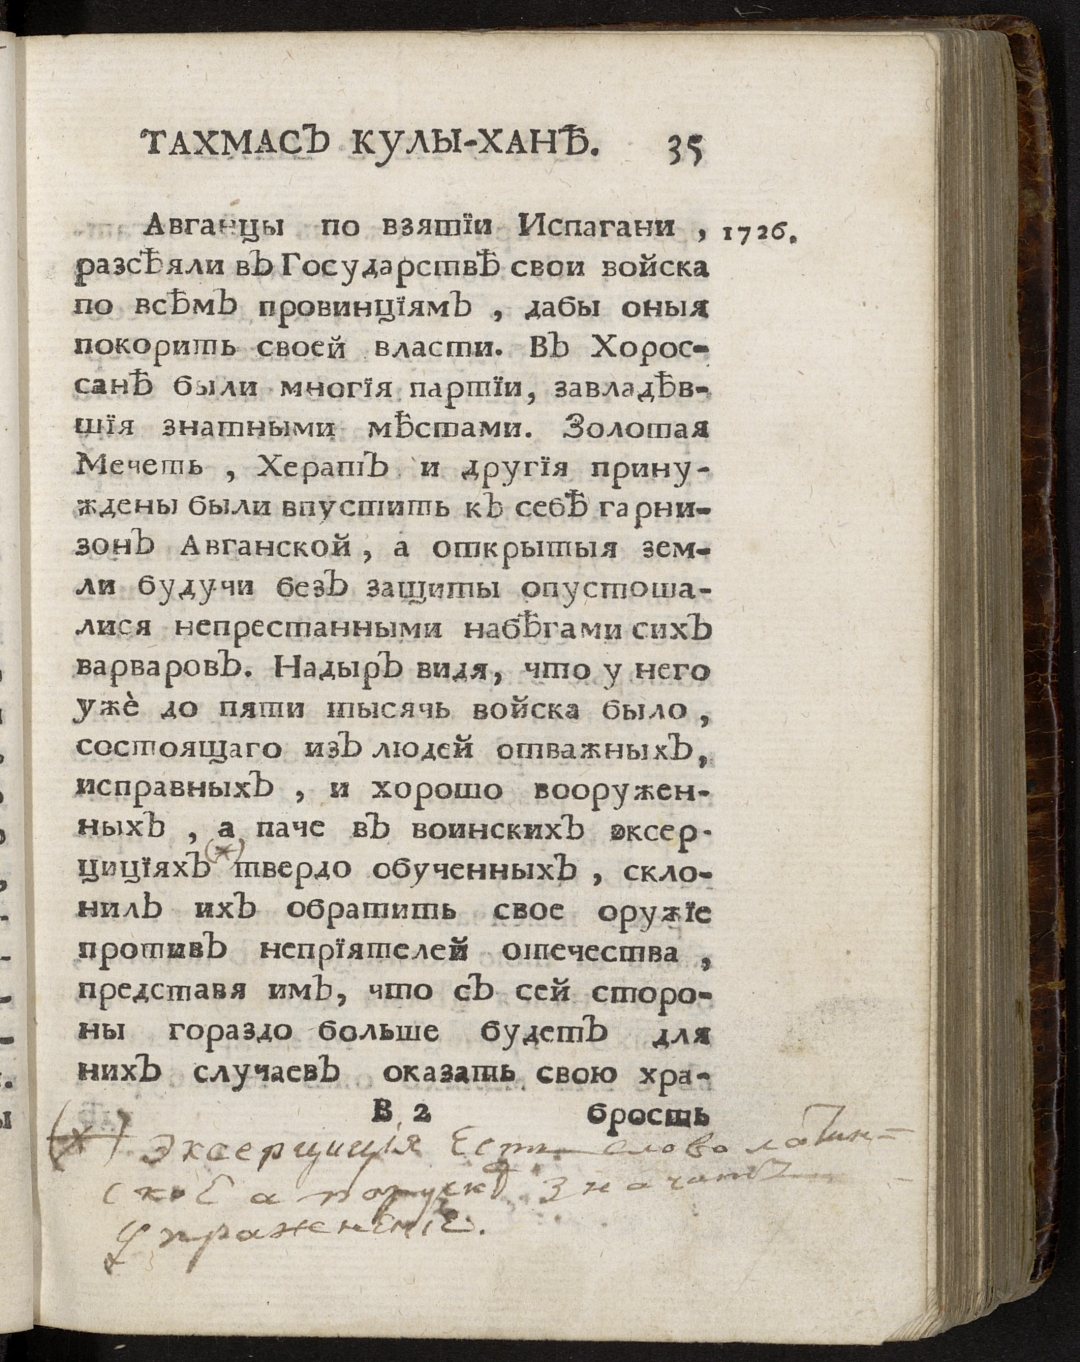 ТАХМАСЪ КУЛЫ-ХАНѢ. 35
Авганцы по взятїи Испагани , 1726.
разсѣяли въ Государствѣ свои войска
по всѣмъ провинцїямъ , дабы оныя
покорить своей власти. Въ Хорос-
санѣ были многїя партїи, завладѣв-
шїя знатными мѣстами. Золотая
Мечеть , Хератъ и другїя прину-
ждены были впустить къ себѣ гарни-
зонъ Авганской , а открытыя зем-
ли будучи безъ защиты опустоша-
лися непрестанными набѣгами сихъ
варваровъ. Надыръ видя, что у него
ужѐ до пяти тысячь войска было ,
состоящаго изъ людей отважныхъ,
исправныхъ , и хорошо вооружен-
ныхъ , а паче въ воинскихъ эксер-
цицїяхъ (*) твердо обученныхъ , скло-
нилъ ихъ обратить свое оружїе
противъ непрїятелей отечества ,
представя имъ, что съ сей сторо-
ны гораздо больше будетъ для
нихъ случаевъ оказать свою хра-
В 2 брость
(*) Эксерциція есть слово латин-
ское а поруски значитъ
упраженіе.